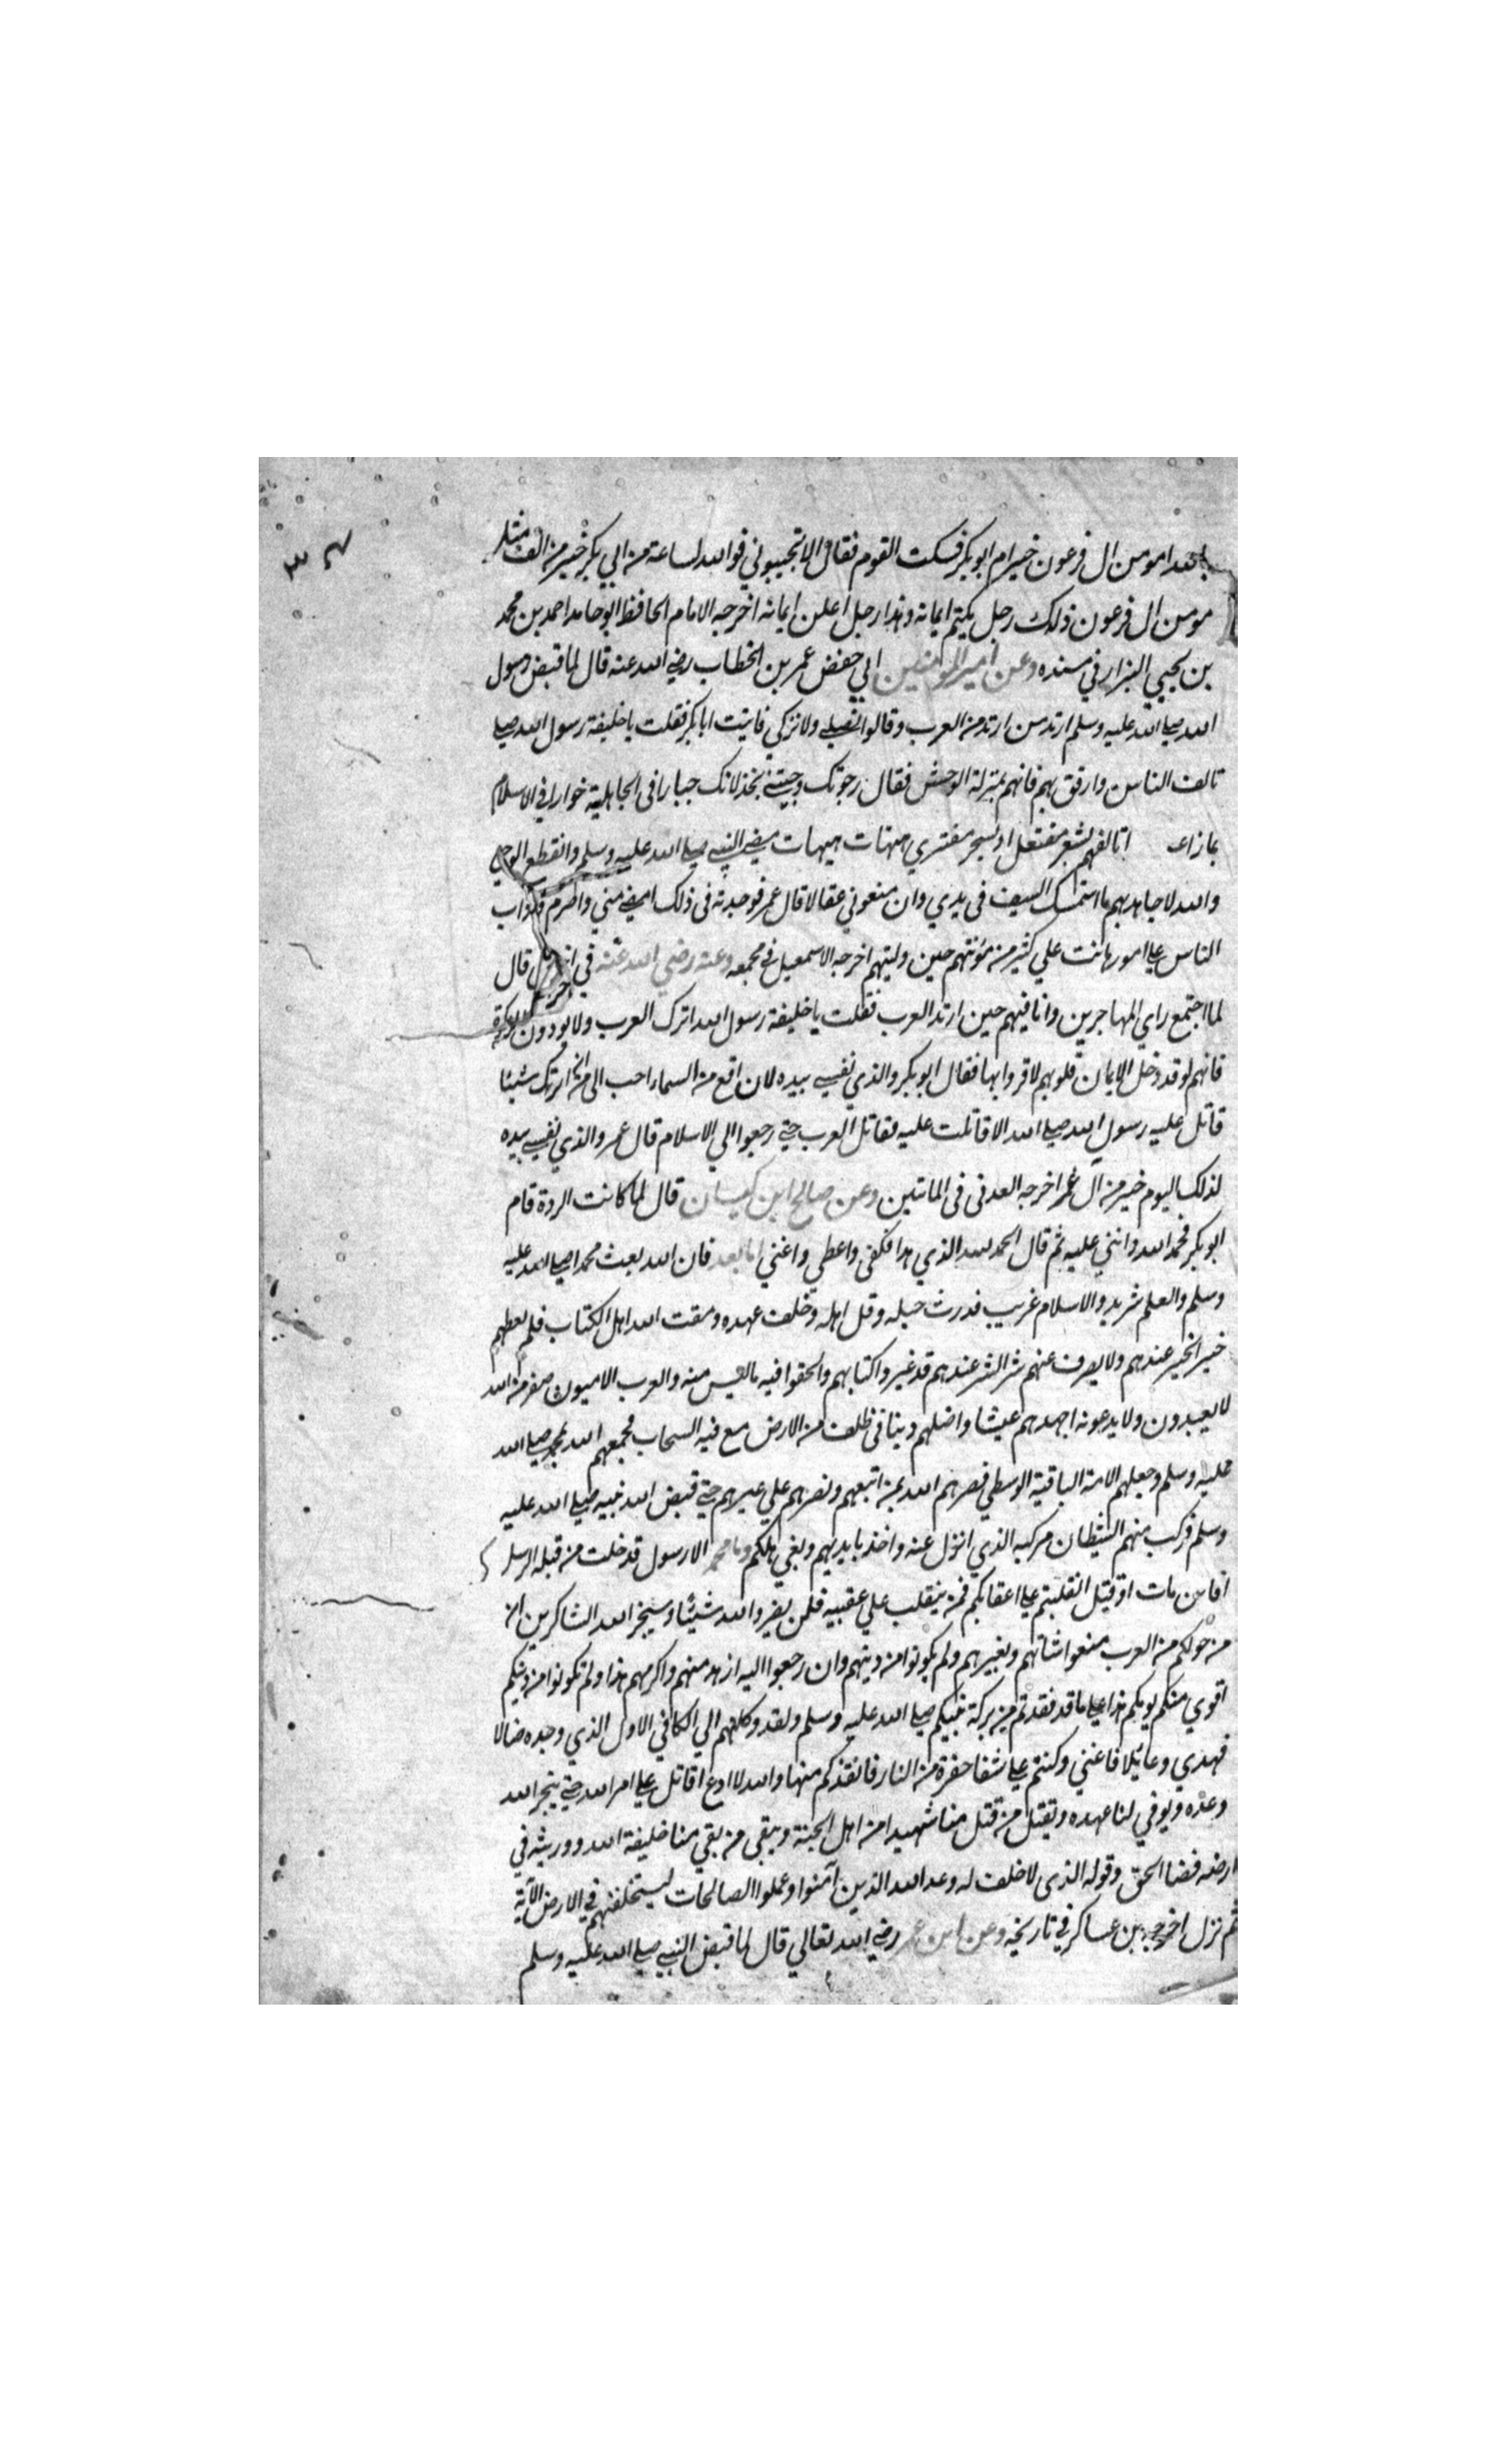 ٣٤
مومن ال فرعون خير ام ابو بكر فسكت القوم فقال الا تجيبوني فوالله لساعة من ابي بكر خير من الف مثل
مومن ال فرعون ذلك رجل يكتم ايمانه وهذا رجل اعلن ايمانه اخرجه الامام الحافظ ابو حامد احمد بن محمد
بن يحيي البزار في مسنده وعن امير المومنين ابي حفص عمر بن الخطاب رضي الله عنه قال لما قبض رسول
الله صلي الله عليه وسلم ارتد من ارتد من العرب وقالوا نصلي ولا نزكي فاتيت ابا بكر فقلت يا خليفة رسول الله صلي
تالف الناس وارفق بهم فانهم بمنزلة الوحش فقال رجوتك وجيتني بخذلانك جبارا في الجاهلية خوارا في الاسلام
بماذا اتالفهم بشعر مفتعل او بسحر مفتري هيهات هيهات مضي النبي صلي الله عليه وسلم وانقطع الوحي
والله لاجاهد بهم ما استمسك السيف في يدي وان منعوني عقالا قال عمر فوجدته في ذلك امضي مني واصرم واداب
الناس علي امور هانت علي كثير من مؤنتهم حين وليتهم اخرجه الاسمعيلي في مجمعه وعنه رضي الله عنه في قال
لما اجتمع راي المهاجرين وانا فيهم حين ارتد العرب فقلت يا خليفة رسول الله اترك العرب ولا يودون الزكوة
فانهم لو قد دخل الايمان قلوبهم لاقروا بها فقال ابو بكر والذي نفسي بيده لان اقع من السماء احب الي من ان اترك شيئا
قاتل عليه رسول الله صلي الله الا قاتلت عليه فقاتل العرب حتي رجعوا الي الاسلام قال عمر والذي نفسي بيده
لذلك اليوم خير من ال عمر اخرجه العدني في الماتتين وعن صالح ابن كيسان قال لما كانت الردة قام
ابو بكر فحمد الله واثني عليه ثم قال الحمد لله الذي هدا فكفي واعطي واغني اما بعد فان الله بعث محمدا صلي الله عليه
وسلم والعلم شريد والاسلام غريب قد رث حبله وقل اهله وخلف عهده ومقت الله اهل الكتاب فلم يعطهم
خير الخير عندهم ولا يصرف عنهم شر الشر عندهم قد غيروا كتابهم والحقوا فيه ما ليس منه والعرب الاميون صفر من الله
لا يعبدون ولا يدعونه اجهدهم عيشا واضلهم دينا في ظلف من الارض مع فيه السحاب فجمعهم الله بمحمد صلي الله
عليه وسلم وجعلهم الامة الباقية الوسطي نصرهم الله بمن اتبعهم ونصرهم علي غيرهم حتي قبض الله نبيه صلي الله عليه
وسلم فركب منهم الشيطان مركبه الذي انزل عنه واخذ بايديهم وبغي هلكهم وما محمد الا رسول قد خلت من قبله الرسل
افاين مات او قتل انقلبتم علي اعقابكم فمن ينقلب علي عقبيه فلن يضر والله شيئا وسيجز الله الشاكرين ان
من حولكم من العرب منعوا شاتهم وبعيرهم ولم يكونوا من دينهم وان رجعوا اليه ازهد منهم واكرمهم هذا ولم تكونوا من دينكم
اقوي منكم يومكم هذا علي ما قد فقدتم من بركة نبيكم صلي الله عليه وسلم ولقد وكلهم الي الكافي الاول الذي وجده ضالا
فهدي وعائلا فاغني وكنتم علي شفا حفرة من النار فانقذكم منها والله لا ادع اقاتل علي امر الله حتي ينجز الله
وعده ويوفي لنا عهده ويقتل من قتل منا شهيدا من اهل الجنة ويبقي من بقي منا خليفة الله وورثيه في
ارضه قضا الحق وقوله الذي لا خلف له وعد الله الذين آمنوا وعملوا الصالحات ليستخلفنهم في الارض الآية
ثم نزل اخرجه بن عساكر في تاريخه وعن ابن عمر رضي الله تعالي قال لما قبض النبي صلي الله عليه وسلم